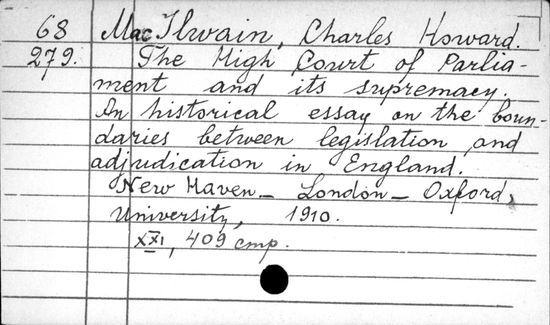 68 Mac Ilwain, Charles Howard.
279. The High Court of Parlia-
ment and its supremacy.
An historical essay on the boun-
daries between legislation and
adjudication in England.
New Haven – London – Oxford,
University, 1910.
XXI, 409 стр.